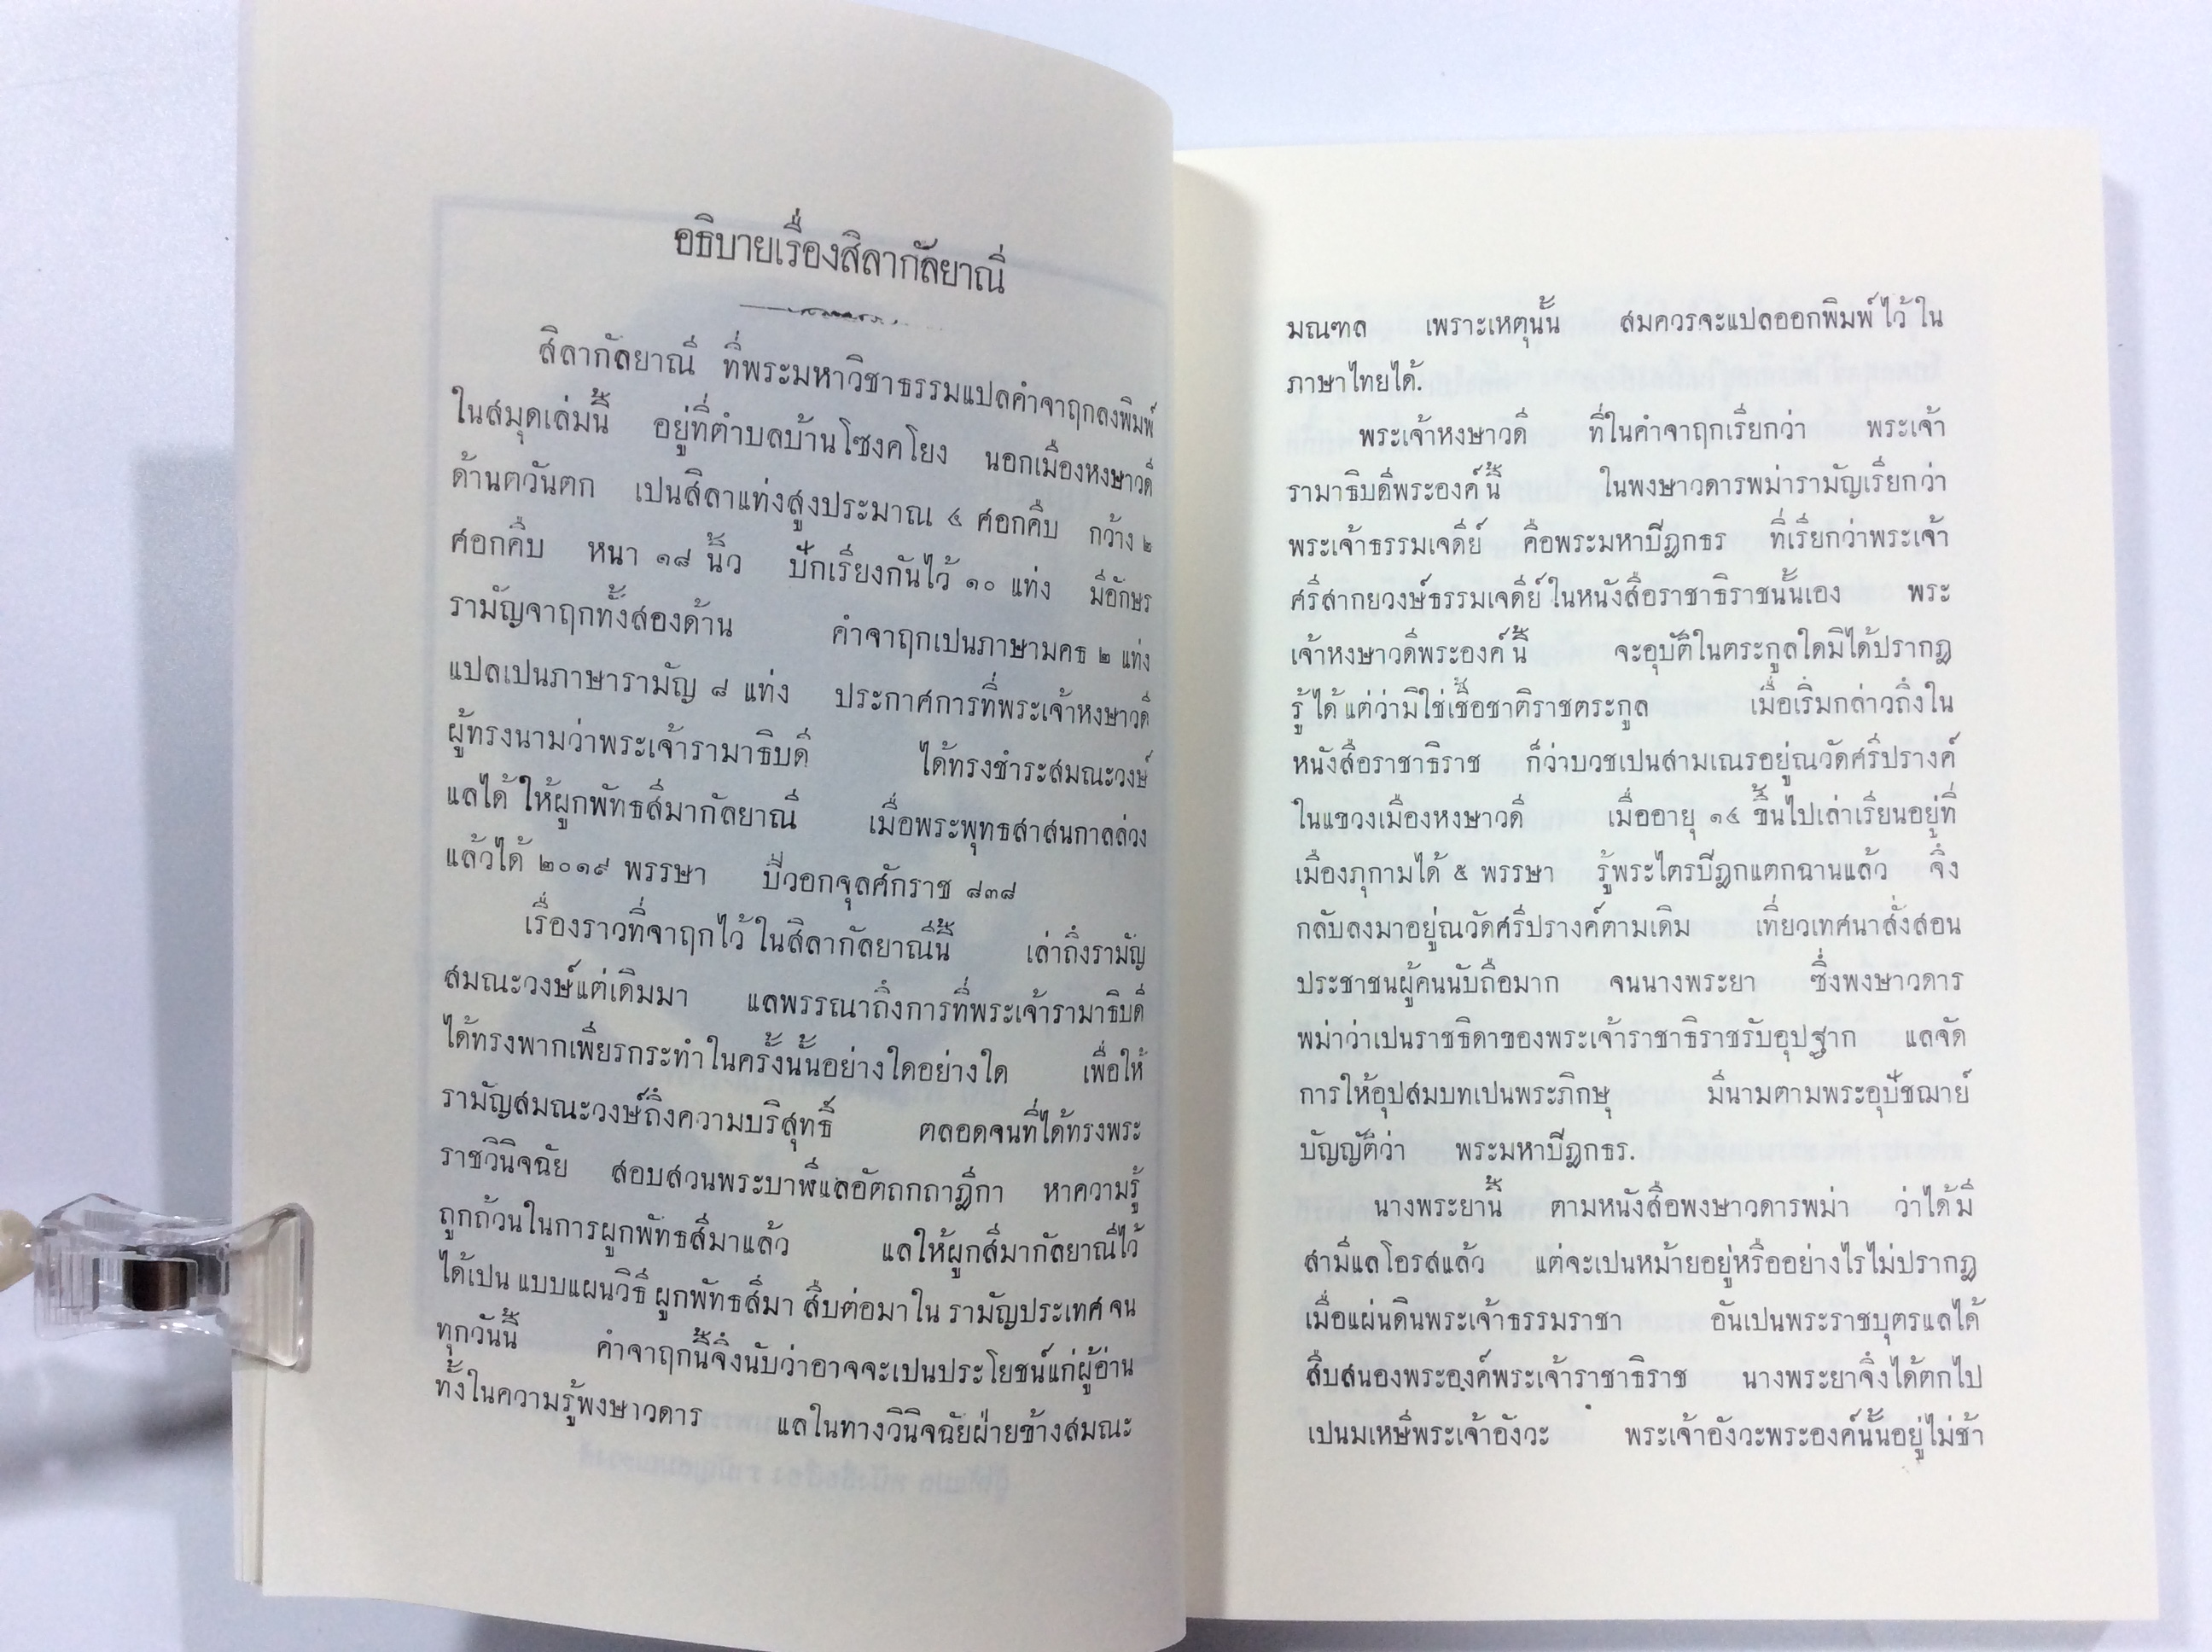 อธิบายเรื่องสิลากัลยาณี
สิลากัลยาณี ที่พระมหาวิชาธรรมแปลคำจาฤกลงพิมพ์
ในสมุดเล่มนี้ อยู่ที่ตำบลบ้านโซงคโยง นอกเมืองหงษาวดี
ด้านตวันตก เปนสิลาแท่งสูงประมาณ ๔ ศอกคืบ กว้าง ๒
ศอกคืบ หนา ๑๘ นิ้ว ปักเรียงกันไว้ ๑๐ แท่ง มีอักษร
รามัญจาฤกทั้งสองด้าน คำจาฤกเปนภาษามคธ ๒ แท่ง
แปลเปนภาษารามัญ ๘ แท่ง ประกาศการที่พระเจ้าหงษาวดี
ผู้ทรงนามว่าพระเจ้ารามาธิบดี ได้ทรงชำระสมณะวงษ์
แลได้ ให้ผูกพัทธสีมากัลยาณี เมื่อพระพุทธสาสนกาลล่วง
แล้วได้ ๒๐๑๙ พรรษา ปีวอกจุลศักราช ๘๓๘
เรื่องราวที่จาฤกไว้ ในสิลากัลยาณีนี้ เล่าถึงรามัญ
สมณะวงษ์แต่เดิมมา แลพรรณาถึงการที่พระเจ้ารามาธิบดี
ได้ทรงพากเพียรกระทำในครั้งนั้นอย่างใดอย่างใด เพื่อให้
รามัญสมณะวงษ์ถึงความบริสุทธิ์ ตลอดจนที่ได้ทรงพระ
ราชวินิจฉัย สอบสวนพระบาฬีแลอัตถกถาฎีกา หาความรู้
ถูกถ้วนในการผูกพัทธสีมาแล้ว แลให้ผูกสีมากัลยาณีไว้
ได้เปน แบบแผนวิธี ผูกพัทธสีมา สืบต่อมาใน รามัญประเทศ จน
ทุกวันนี้ คำจาฤกนี้จึงนับว่าอาจจะเปนประโยชน์แก่ผู้อ่าน
ทั้งในความรู้พงษาวดาร แลในทางวินิจฉัยฝ่ายข้างสมณะ
มณฑล เพราะเหตุนั้น สมควรจะแปลออกพิมพ์ ไว้ ใน
ภาษาไทยได้.
พระเจ้าหงษาวดี ที่ในคำจาฤกเรียกว่า พระเจ้า
รามาธิบดีพระองค์ นี้ ในพงษาวดารพม่ารามัญเรียกว่า
พระเจ้าธรรมเจดีย์ คือพระมหาปีฎกธร ที่เรียกว่าพระเจ้า
ศรีสากยวงษ์ธรรมเจดีย์ ในหนังสือราชาธิราชนั้นเอง พระ
เจ้าหงษาวดีพระองค์ นี้ จะอุบัติในตระกูลใดมิได้ปรากฎ
รู้ ได้ แต่ว่ามิใช่เชื้อชาติราชตระกูล เมื่อเริ่มกล่าวถึงใน
หนังสือราชาธิราช ก็ว่าบวชเปนสามเณรอยู่ณวัดศรีปรางค์
ในแขวงเมืองหงษาวดี เมื่ออายุ ๑๔ ขึ้นไปเล่าเรียนอยู่ที่
เมืองภุกามได้ ๕ พรรษา รู้พระไตรปีฎกแตกฉานแล้ว จึง
กลับลงมาอยู่ณวัดศรีปรางค์ตามเดิม เที่ยวเทศนาสั่งสอน
ประชาชนผู้คนนับถือมาก จนนางพระยา ซึ่งพงษาวดาร
พม่าว่าเปนราชธิดาของพระเจ้าราชาธิราชรับอุปฐาก แลจัด
การให้อุปสมบทเปนพระภิกษุ มีนามตามพระอุปัชฌาย์
บัญญัติว่า พระมหาปีฎกธร.
นางพระยานี้ ตามหนังสือพงษาวดารพม่า ว่าได้ มี
สามีแลโอรสแล้ว แต่จะเปนหม้ายอยู่หรืออย่างไรไม่ปรากฎ
เมื่อแผ่นดินพระเจ้าธรรมราชา อันเปนพระราชบุตรแลได้
สืบสนองพระองค์พระเจ้าราชาธิราช นางพระยาจึงได้ตกไป
เปนมเหษีพระเจ้าอังวะ พระเจ้าอังวะพระองค์นั้นอยู่ไม่ช้า